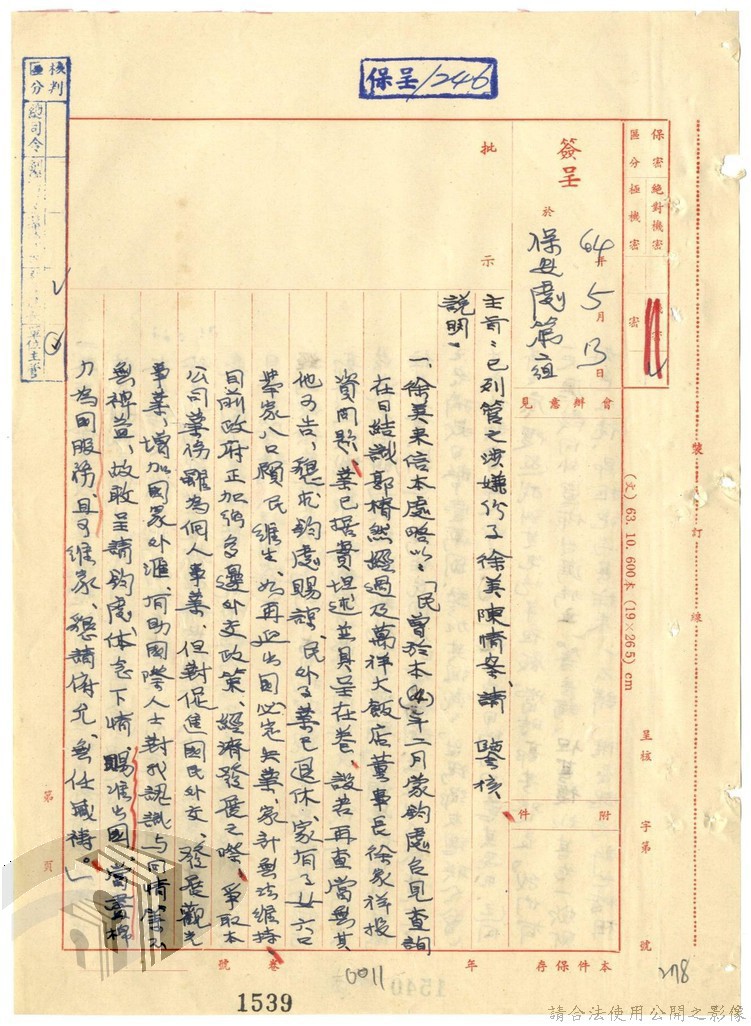 保呈/246
核判
區分
總司令
單位主管
保密
區分
絕對機密
極機密
機密
密
簽呈
於
64年5月13日
保安處第二組
批
示
會辦意見
附
件
裝
訂
線
(文) 63. 10. 600本 (19×26.5) cm
呈核
字第
號
本件保存
年
號
卷
第
頁
主旨:已列管之涉嫌份子徐美陳情案、請 鑒核、
說明:
一、徐美來信本處略以:「民曾於本(64)年二月蒙鈞處召見查詢
在日結識郭椿然經過及萬祥大飯店董事長徐家祥投
資問題、業已據實坦述並具呈在卷、設若再查當無其
他可告、懇求鈞處賜諒、民外子業已退休、家有子女六口
舉家八口賴民維生、如再延出國必定失業、家計無法維持
目前政府正加強多邊外交政策、經濟發展之際、爭取本
公司業務雖為個人事業、但對促進國民外交、發展觀光
事業、增加國家外滙、有助國際人士對我認識與同情、
無裨益、故敢呈請鈞處体念下情賜准出國、當盡棉
力為國服務、且可維家、懇請俯允、無任感禱。」
0011
1540
1539
278
請合法使用公開之影像